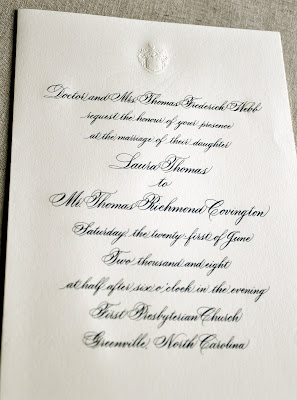 Doctor and Mrs. Thomas Frederick Nebb
request the honour of your presence
at the marriage of their daughter
Laura Thomas
to
Mr. Thomas Richmond Covington
Saturday, the twenty-first of June
Two thousand and eight
at half after six o'clock in the evening
First Presbyterian Church
Greenville, North Carolina